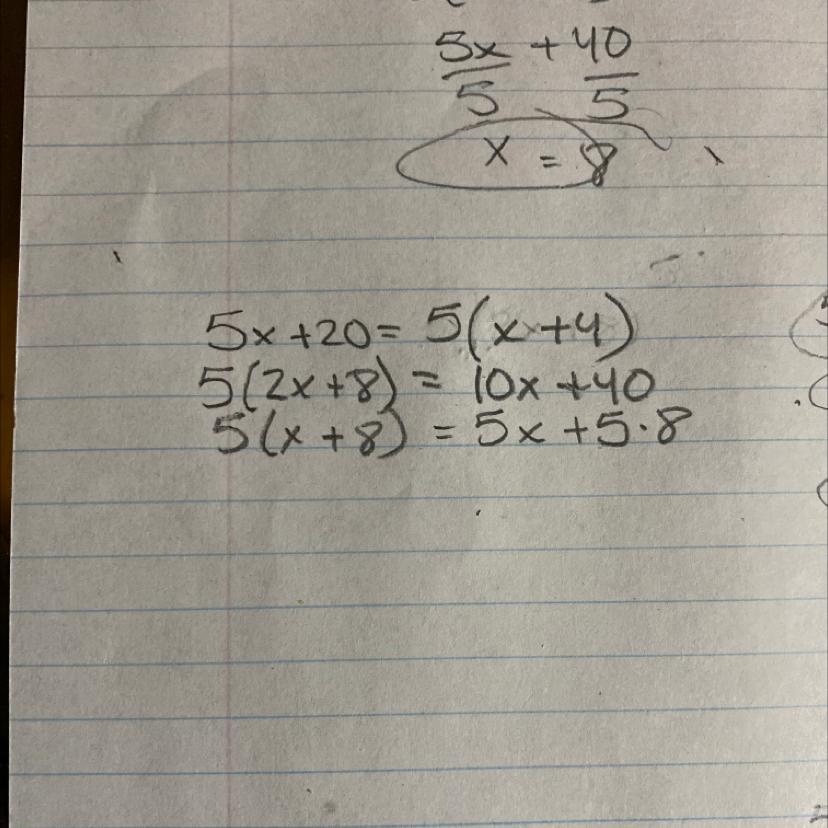 5x + 40
5 5
x = 8
5x + 20 = 5(x + 4)
5(2x + 8) = 10x + 40
5(x + 8) = 5x + 5·8